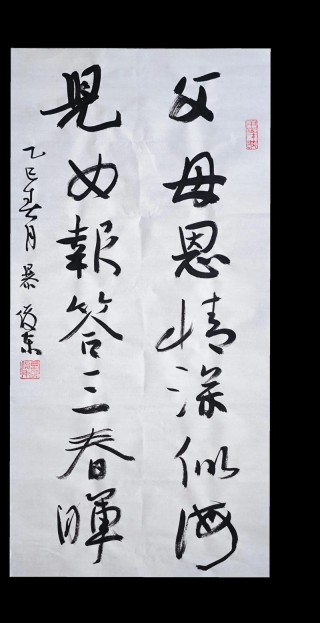 父母恩情深似海
兒女報答三春暉
乙巳春月暴俊东